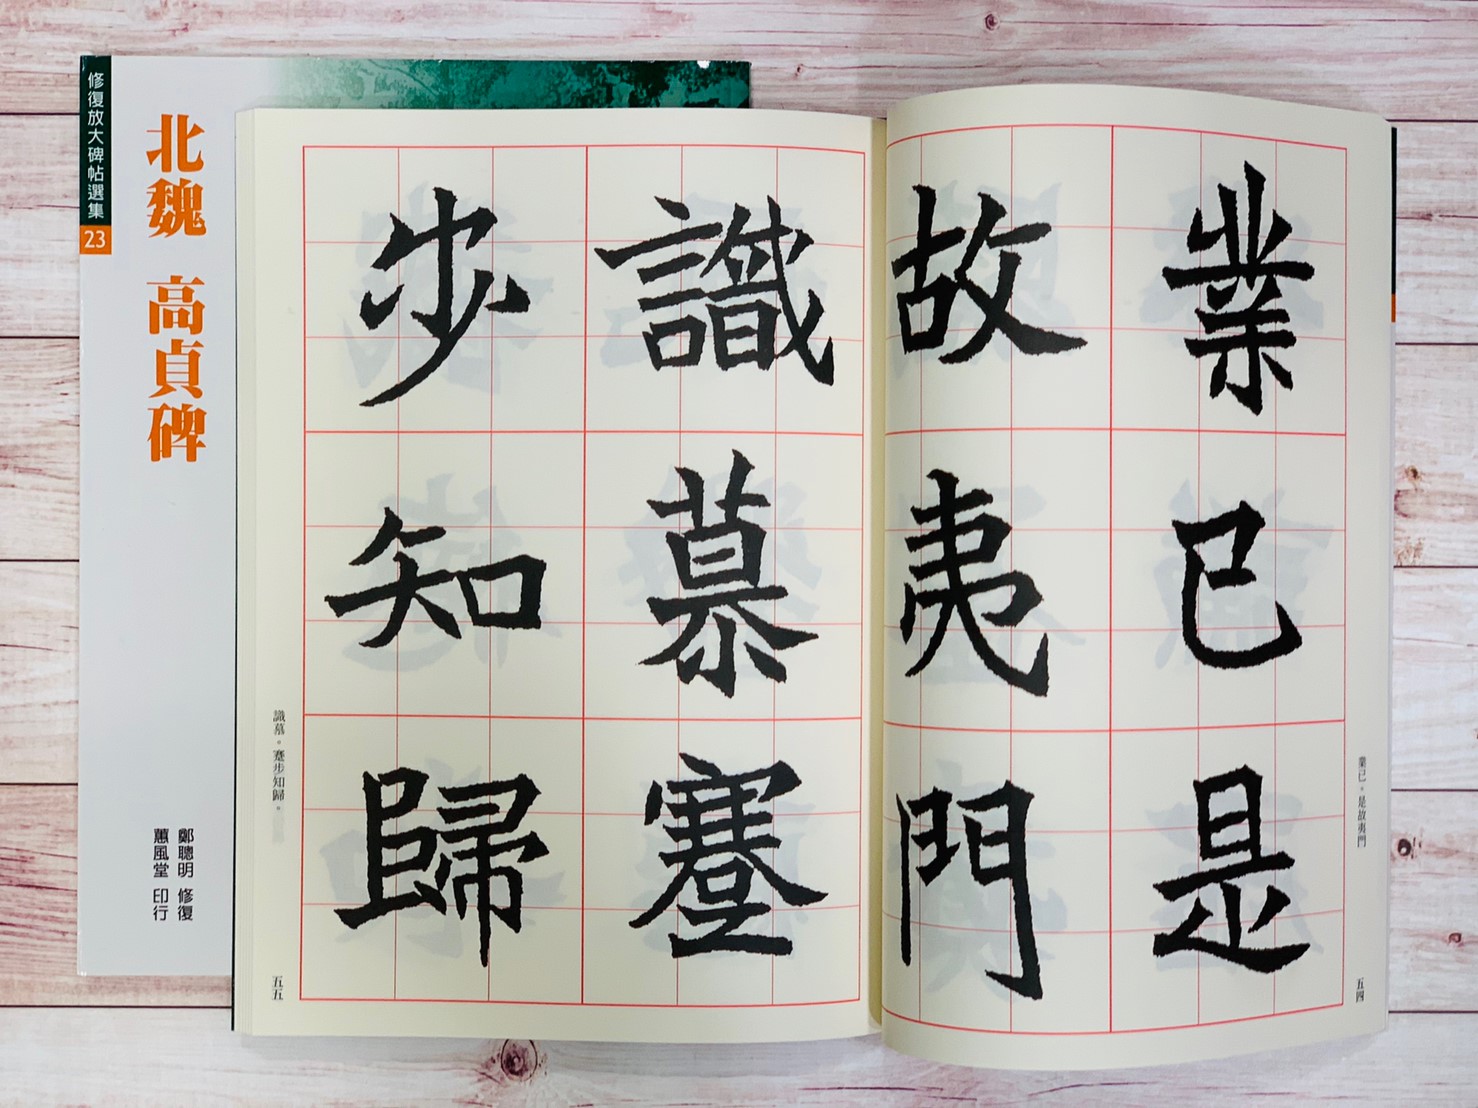 修復放大碑帖選集
23
北魏 高貞碑
鄭聰明 修復
蕙風堂 印行
業已是
故夷門
業已。是故夷門
五四
識慕蹇
步知歸
識慕。蹇步知歸。
五五